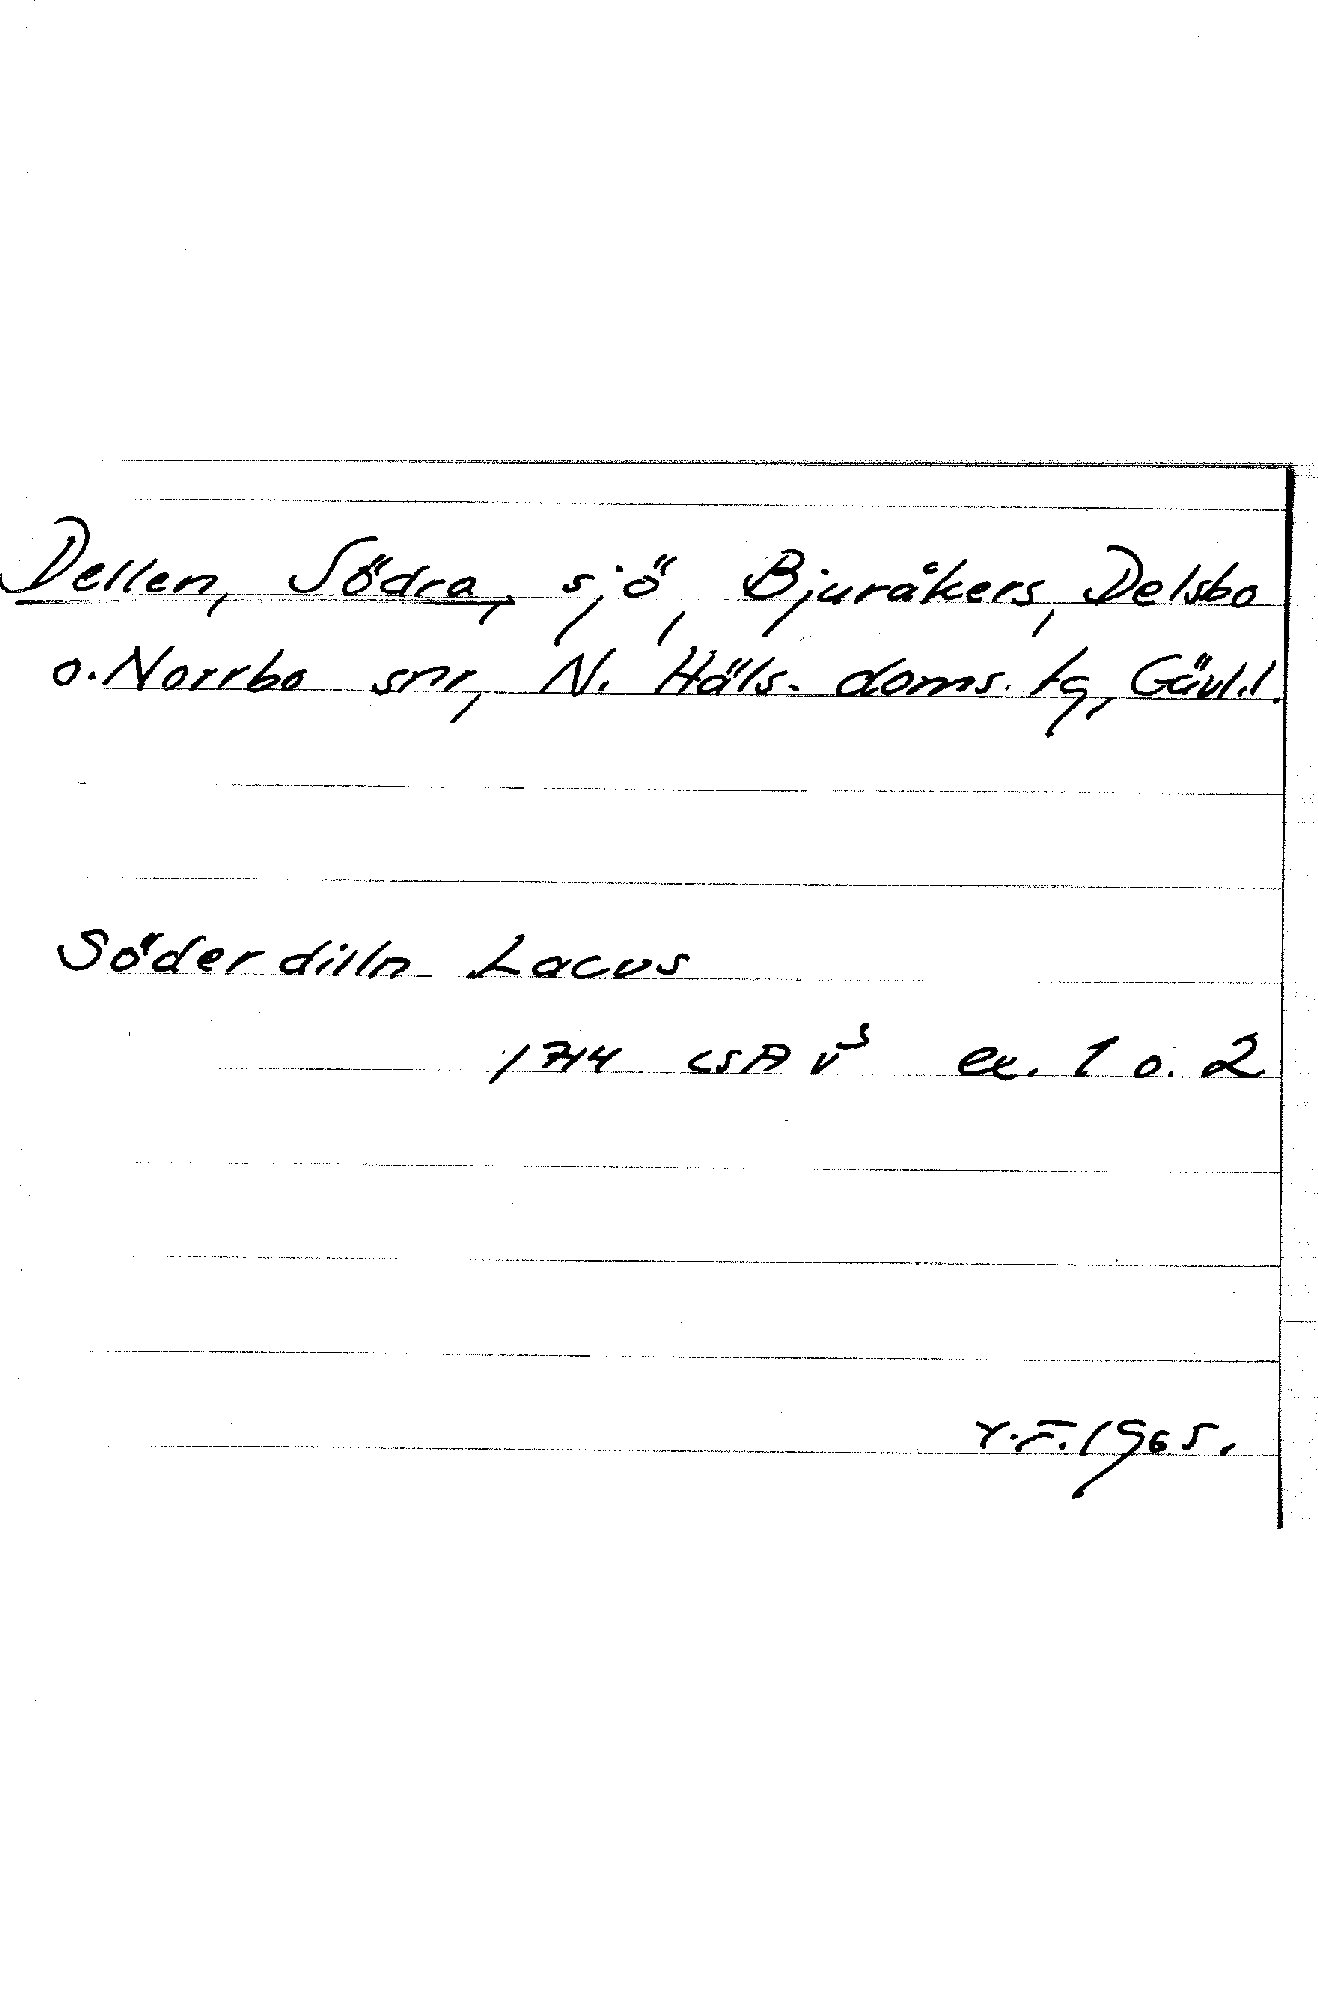 Dellen, Södra, sjö, Bjuråkers, Delsbo
o. Norrbo snr, N. Häls. doms. tg, Gävl.l.
Söder dilln Lacus
1714 LSA v⁵ ex. 1 o. 2
Y.F. 1965.